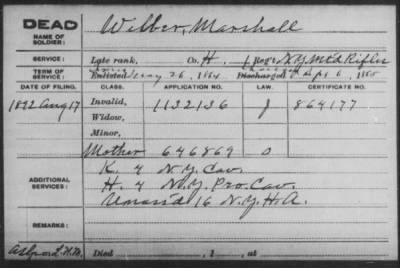 DEAD
NAME OF SOLDIER: Wilber, Marshall
SERVICE: Late rank, Co. H. 1 Reg't N.Y. Mt'd Rifles
TERM OF SERVICE: Enlisted 26, 1864 Discharged 6, 1865
DATE OF FILING. CLASS. APPLICATION NO. LAW. CERTIFICATE NO.
1892 Aug 17 Invalid, 1132136 J 864177
Widow,
Minor,
Mother 646869 O
ADDITIONAL SERVICES: K. 4 N.Y. Cav.
H. 4 N.Y. Pro. Cav.
Unass'd 16 N.Y. H.A.
REMARKS:
Died , 1 , at